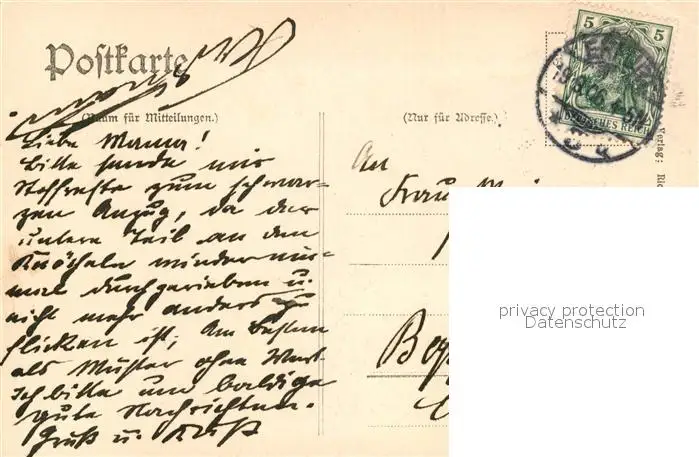 Postkarte
(Raum für Mitteilungen.)
(Nur für Adresse.)
Liebe Mama!
Bitte sende mir
Stoffreste zum schwar-
zen Anzug, da der
untere Teil an den
Knöcheln wieder ein-
mal durchgerieben u.
nicht mehr anders zu
flicken ist, Am besten
als Muster ohne Wert
Ich bitte um baldige
gute Nachrichten.
Gruß u. Kuß
An
Frau
5 5
DEUTSCHES REICH
Verlag:
privacy protection
Datenschutz